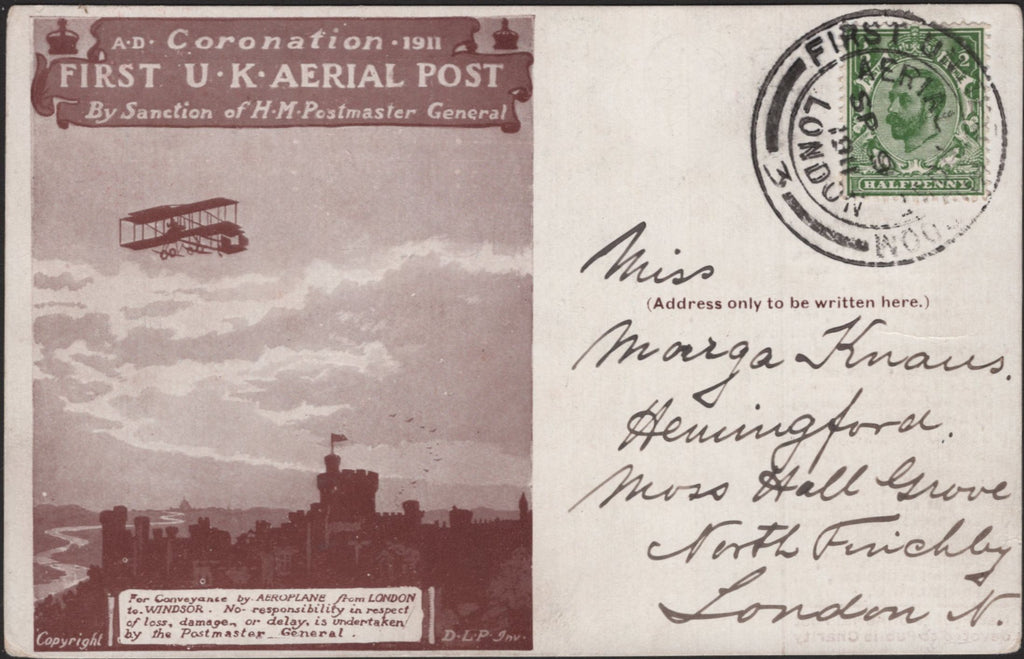 A·D· Coronation · 1911
FIRST U·K·AERIAL POST
By Sanction of H·M·Postmaster General
For Conveyance by AEROPLANE from LONDON
to WINDSOR. No responsibility in respect
of loss, damage, or delay, is undertaken
by the Postmaster General.
Copyright
D·L·P·Inv.
FIRST U.K.
AERIAL
SP 9
1911
LONDON
3
HALFPENNY
Miss
(Address only to be written here.)
Marga Knaus.
Hemingford.
Moss Hall Grove
North Finchley
London N.